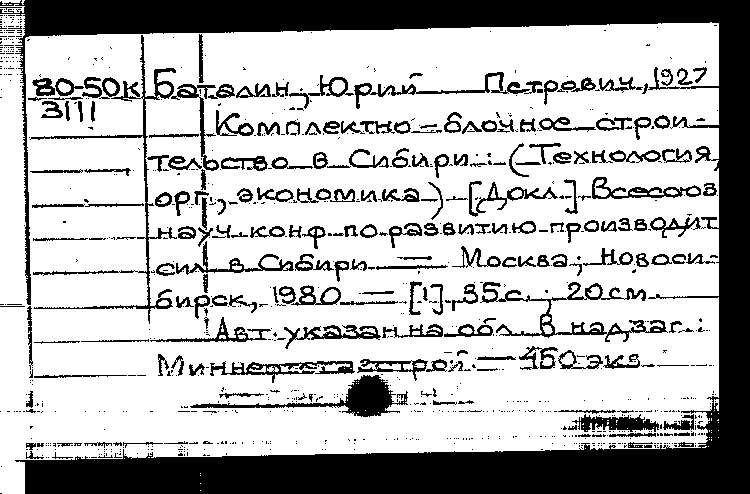 80-50к Баталин, Юрий Петрович, 1927
3111 Комплектно-блочное строи-
тельство в Сибири: (Технология,
орг., экономика) [Докл.] Всесоюз
науч. конф. по развитию производит
сил в Сибири — Москва; Новоси-
бирск, 1980 — [1], 35 с.; 20 см.
Авт. указан на обл. В надзаг.:
Миннефтегазстрой. — 450 экз